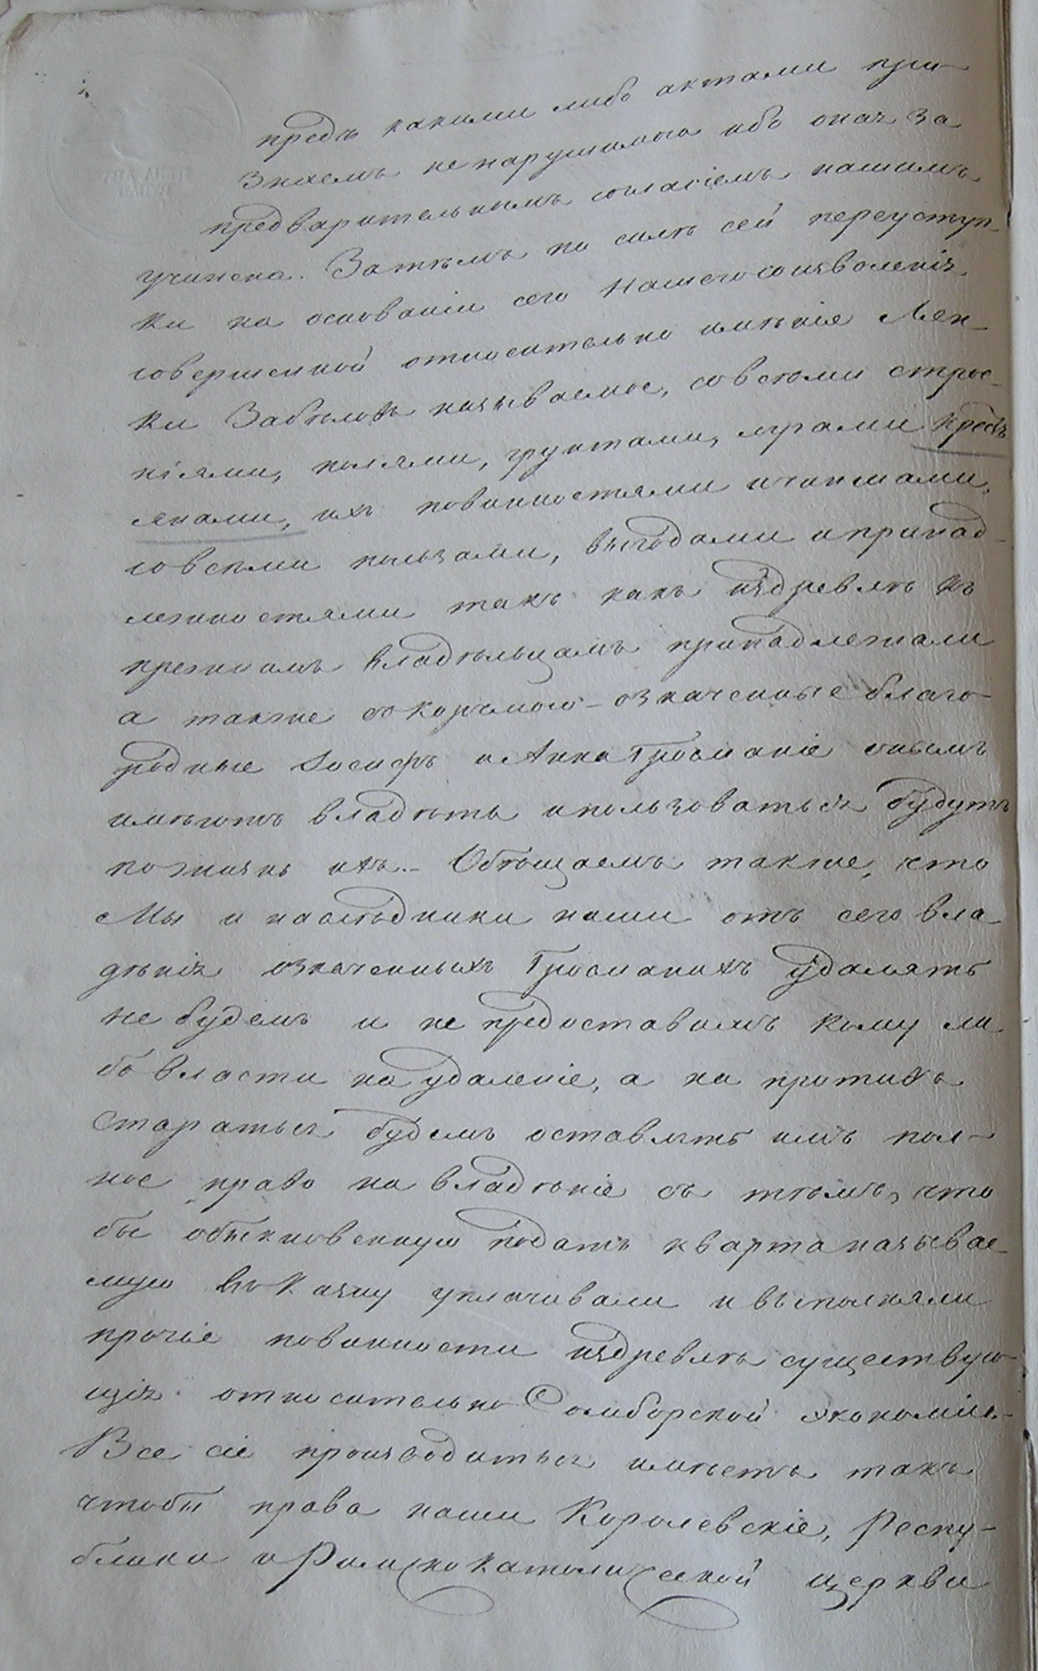 предъ какими либо актами при-
знаемъ ненарушимою ибо оная за
предварительнымъ согласіемъ нашимъ
учинена. Затѣмъ по силѣ сей переуступ-
ки на основаніи сего нашего соизволенія
совершенной относительно имѣнія Лен-
ки называемое, со всѣми строе-
ніями, полями, грунтами, кресть-
янами, ихъ повинностями и чиншами,
со всѣми пользами, выгодами и принад-
лежностями такъ какъ издревлѣ къ
прежнимъ владѣльцамъ принадлежали
а также означенные благо-
родные Іосифъ и Анна онымъ
имѣютъ владѣть и пользоваться будутъ
по жизнь ихъ.- Обѣщаемъ также, что
Мы и наслѣдники наши отъ сего вла-
дѣнія означенныхъ удалять
не будемъ и не предоставимъ кому ли-
бо власти на удаленіе, а на противъ
стараться будемъ оставлять имъ пол-
ное право на владѣніе съ тѣмъ, что
бы обыкновенную подать кварта называе-
мую въ Казну уплачивали и выполняли
прочіе повинности издревлѣ существую-
щія относительно Самборской экономіи.-
Все сіе производиться имѣетъ такъ
чтобы права наши Королевскіе, Респу-
блики и Римскокатолической церкви